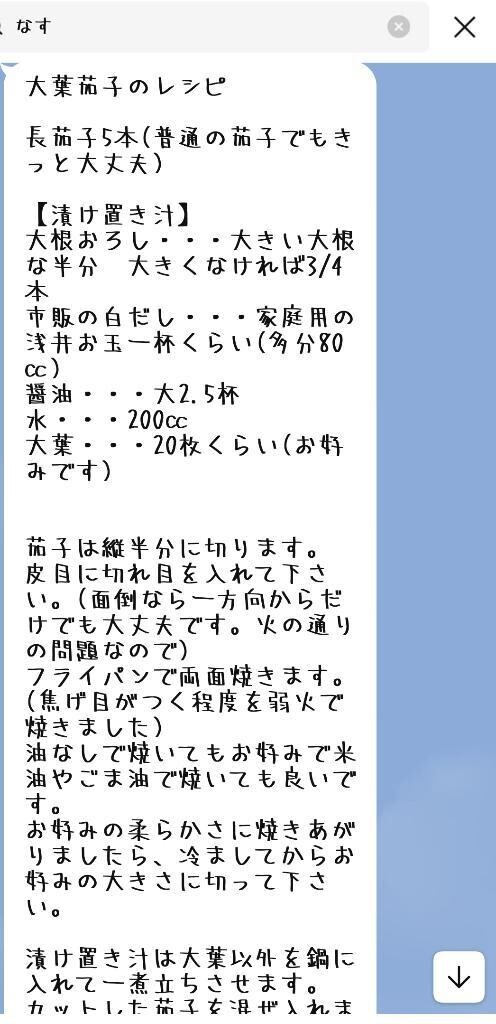 なす
大葉茄子のレシピ
長茄子5本(普通の茄子でもき
っと大丈夫)
【漬け置き汁】
大根おろし・・・大きい大根
な半分　大きくなければ3/4
本
市販の白だし・・・家庭用の
浅井お玉一杯くらい(多分80
cc)
醤油・・・大2.5杯
水・・・200cc
大葉・・・20枚くらい(お好
みです)
茄子は縦半分に切ります。
皮目に切れ目を入れて下さ
い。(面倒なら一方向からだ
けでも大丈夫です。火の通り
の問題なので)
フライパンで両面焼きます。
(焦げ目がつく程度を弱火で
焼きました)
油なしで焼いてもお好みで米
油やごま油で焼いても良いで
す。
お好みの柔らかさに焼きあが
りましたら、冷ましてからお
好みの大きさに切って下さ
い。
漬け置き汁は大葉以外を鍋に
入れて一煮立ちさせます。
カットした茄子を混ぜ入れま